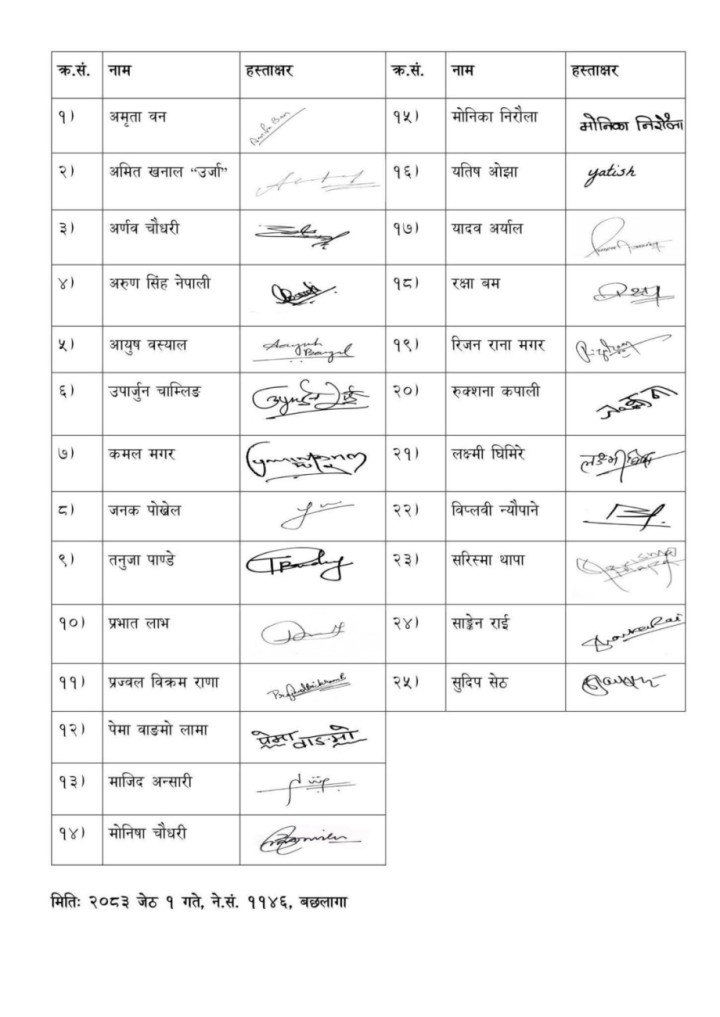 क्र.सं. नाम हस्ताक्षर क्र.सं. नाम हस्ताक्षर
१) अमृता वन १५) मोनिका निरौला मोनिका निरौला
२) अमित खनाल “उर्जा” १६) यतिष ओझा yatish
३) अर्णव चौधरी १७) यादव अर्याल
४) अरुण सिंह नेपाली १८) रक्षा बम
५) आयुष वस्याल १९) रिजन राना मगर
६) उपार्जुन चाम्लिङ २०) रुक्शना कपाली
७) कमल मगर २१) लक्ष्मी घिमिरे
८) जनक पोख्रेल २२) विप्लवी न्यौपाने
९) तनुजा पाण्डे २३) सरिस्मा थापा
१०) प्रभात लाभ २४) साङ्केन राई
११) प्रज्वल विक्रम राणा २५) सुदिप सेठ
१२) पेमा वाङमो लामा पेमा वाङमो
१३) माजिद अन्सारी
१४) मोनिषा चौधरी
मितिः २०८३ जेठ १ गते, ने.सं. ११४६, बछलागा